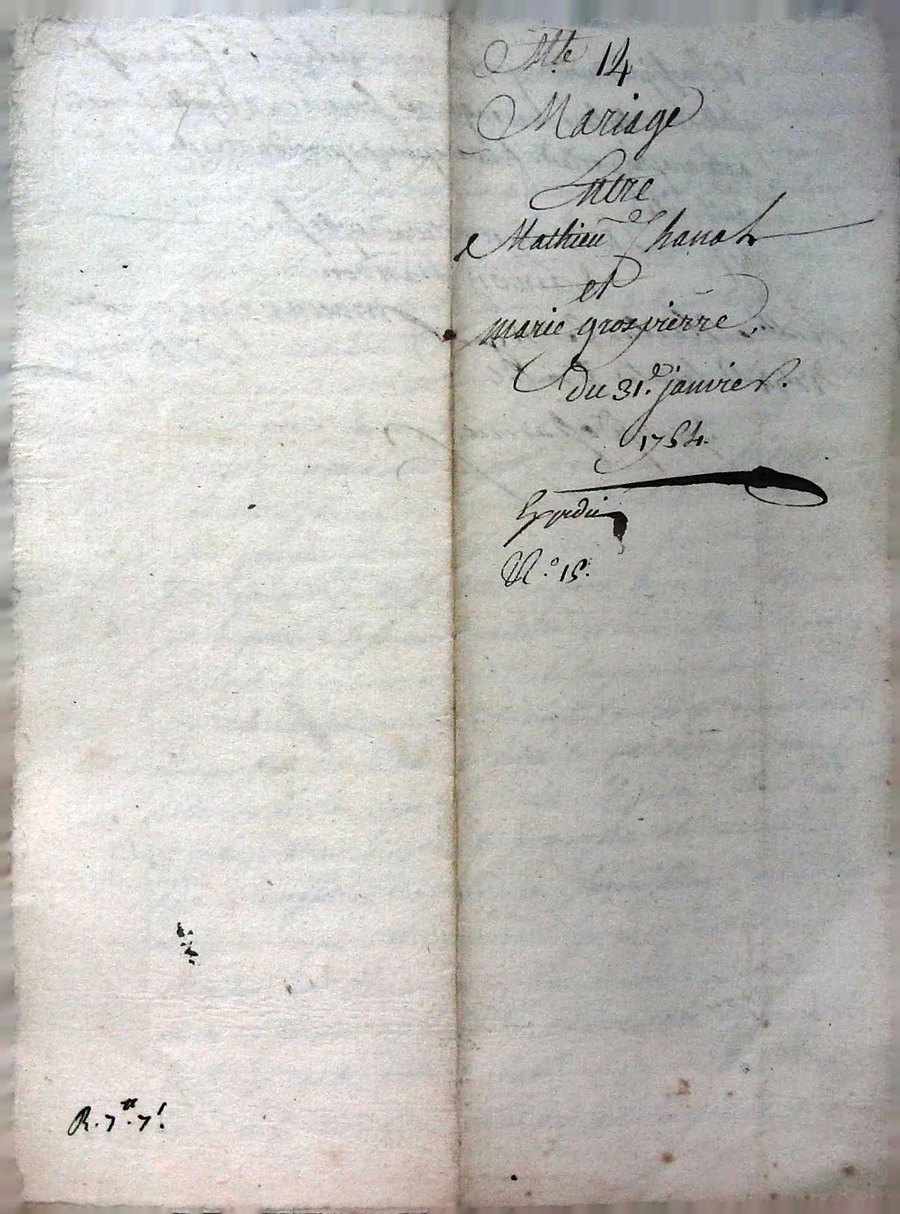 Mtte 14
Mariage
Entre
Mathieu Chanal
et
marie grospierre.
Du 31.e janvier.
1754.
Expedié
N.o 15.
R. 7tt. 7s